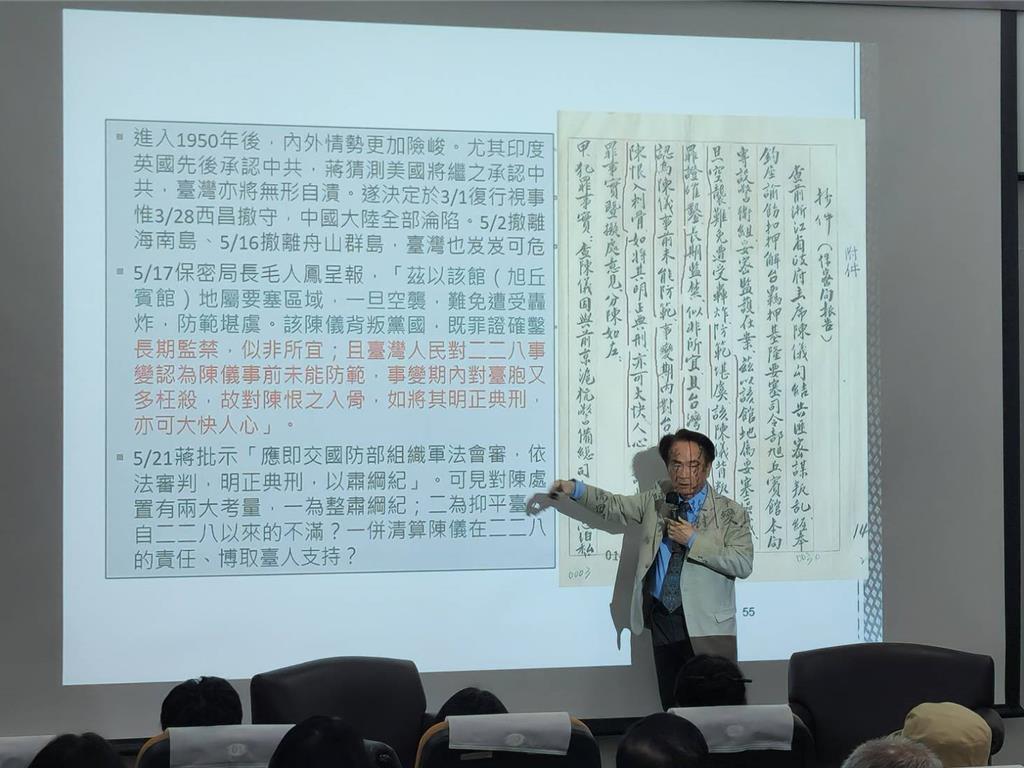 進入1950年後，內外情勢更加險峻。尤其印度
英國先後承認中共，蔣猜測美國將繼之承認中
共，臺灣亦將無形自潰。遂決定於3/1復行視事
惟3/28西昌撤守，中國大陸全部淪陷。5/2撤離
海南島、5/16撤離舟山群島，臺灣也岌岌可危
5/17保密局長毛人鳳呈報，「茲以該館（旭丘
賓館）地屬要塞區域，一旦空襲，難免遭受轟
炸，防範堪虞。該陳儀背叛黨國，既罪證確鑿
長期監禁，似非所宜；且臺灣人民對二二八事
變認為陳儀事前未能防範，事變期內對臺胞又
多枉殺，故對陳恨之入骨，如將其明正典刑，
亦可大快人心」。
5/21蔣批示「應即交國防部組織軍法會審，依
法審判，明正典刑，以肅綱紀」。可見對陳處
置有兩大考量，一為整肅綱紀；二為抑平臺
自二二八以來的不滿？一併清算陳儀在二二八
的責任、博取臺人支持？
附件
抄件（保密局報告）
查前浙江省政府主席陳儀勾結共匪密謀叛亂經奉
鈞座諭飭扣押解台羈押基隆要塞司令部旭丘賓館本局
專設警衛組妥密監護在案茲以該館地屬要塞區
旦空襲難免遭受轟炸防範堪虞該陳儀背叛
罪證確鑿長期監禁似非所宜且台灣
認為陳儀事前未能防範事變期內對台
陳恨入刺骨如將其明正典刑亦可大快人心
罪事實暨擬處意見分陳如左：
甲、犯罪事實：查陳儀因與前京滬杭警備總司
01
0003
55